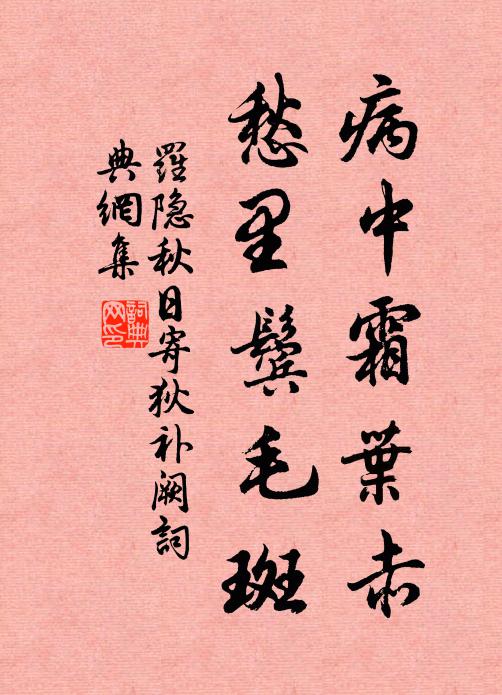 病中霜葉赤
愁里鬓毛斑
羅隐秋日寄狄补阙詞
典網集
詞典网印